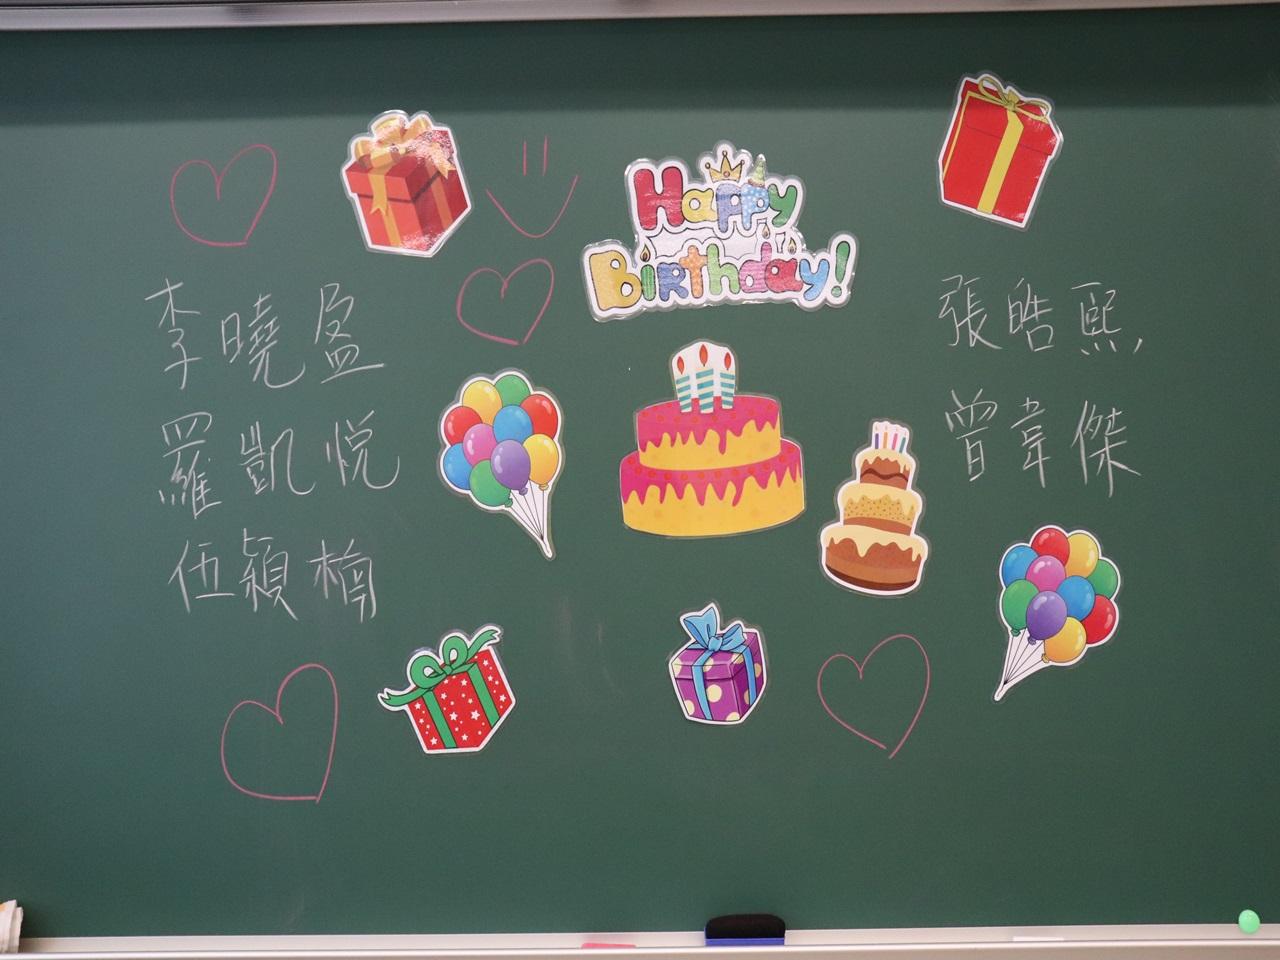 Happy
Birthday!
李曉盈
羅凱悅
伍穎楠
張皓熙
曾韋傑